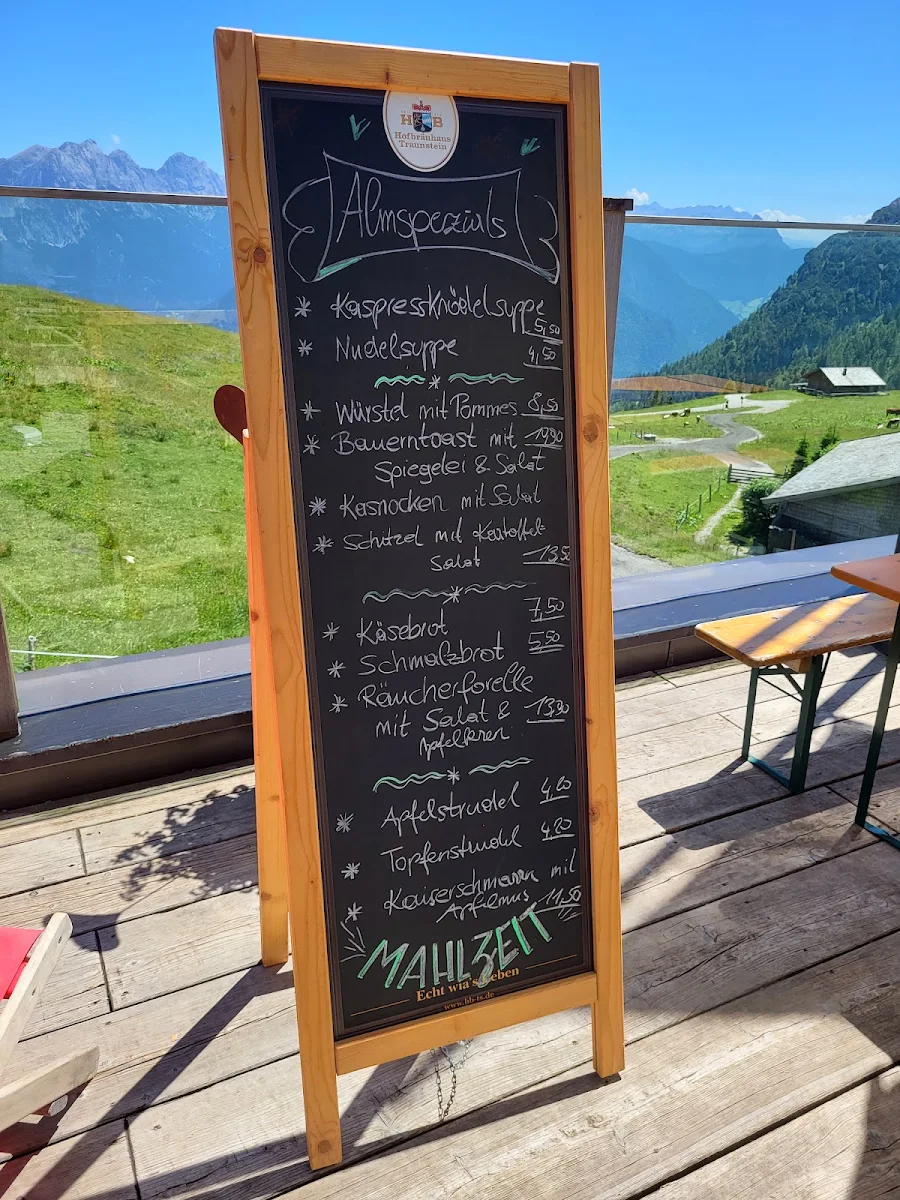 H B
Hofbräuhaus
Traunstein
Almspezials
* Kaspressknödelsuppe 5,50
* Nudelsuppe 4,50
* Würstel mit Pommes 8,50
* Bauerntoast mit
Spiegelei & Salat
* Kasnocken mit Salat
* Schitzel mit Kartoffel-
Salat 13,50
* Käsebrot 7,50
* Schmalzbrot 5,50
* Räucherforelle
mit Salat & 13,90
Apfelkren
* Apfelstrudel 4,20
* Topfenstrudel 4,20
* Kaiserschmarrn mit
Apfelmus 11,50
MAHLZEIT
Echt wia's Leben
www.hb-ts.de